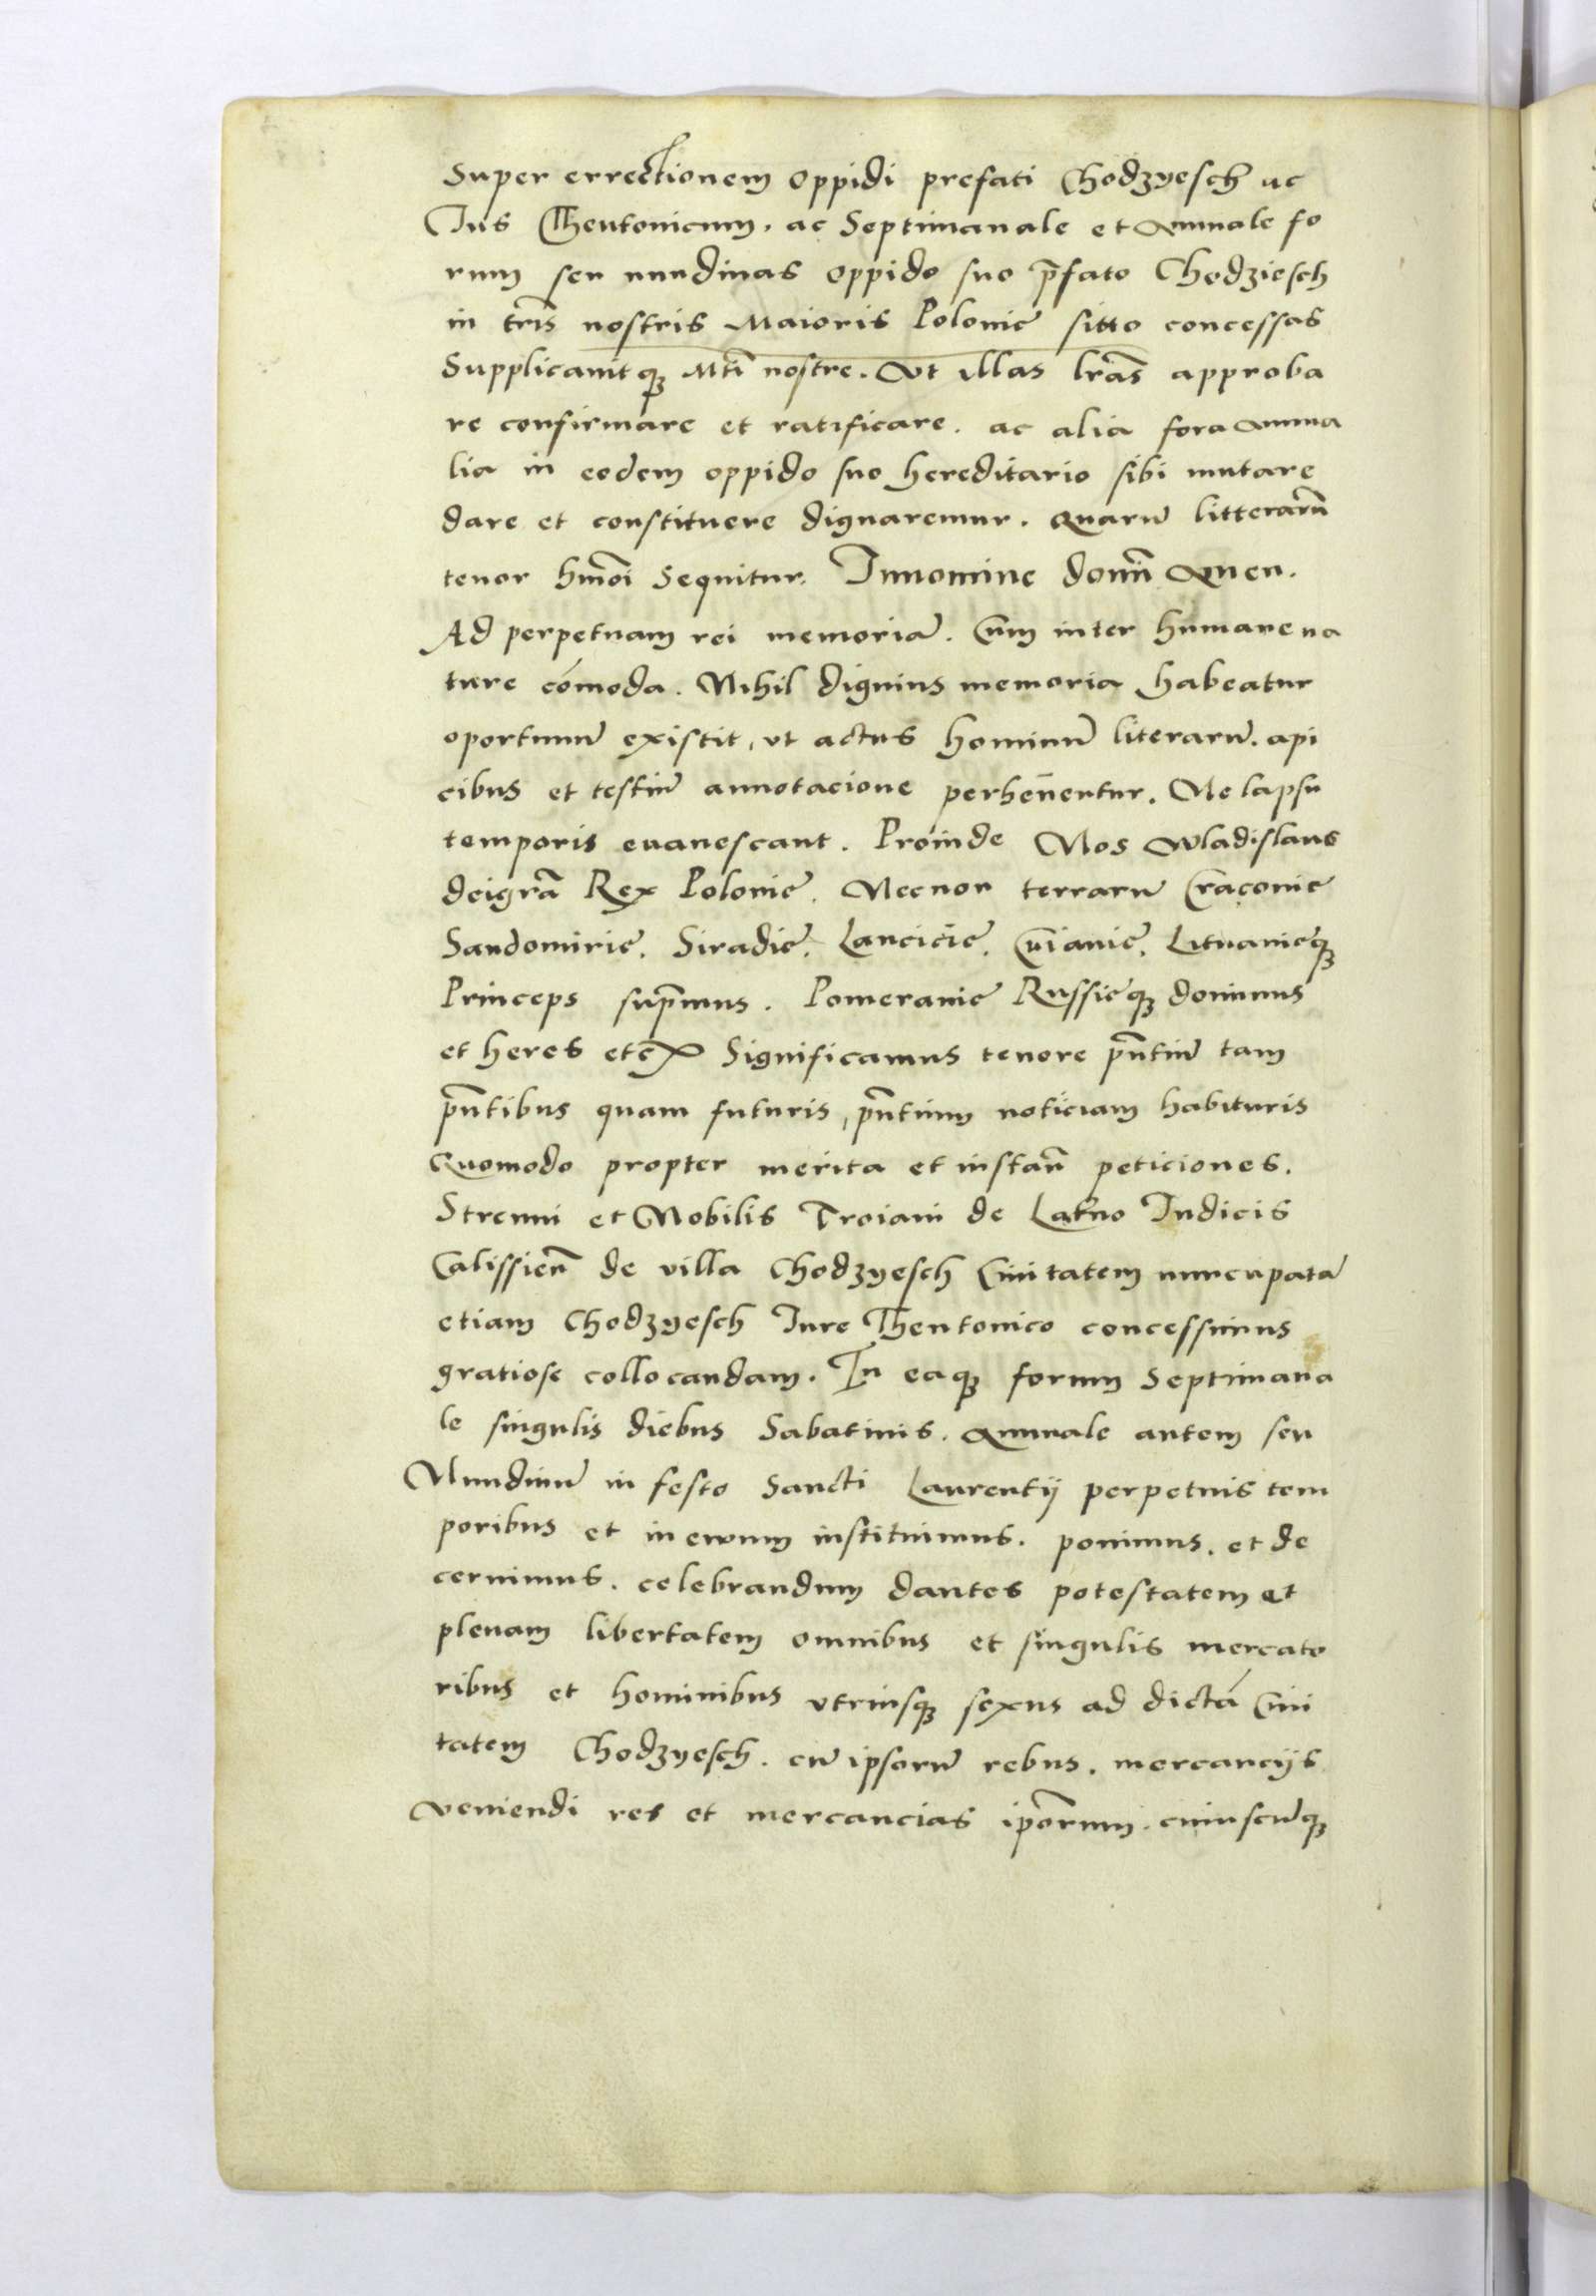 Super errectionem oppidi prefati Chodzyesch ac
Jus Theutonicum. ac Septimanale et Annuale fo
rum seu nundinas oppido suo p̄fato Chodziesch
in tr̄is nostris Maioris Polonie sitto concessas
Supplicauitq; Mti nostre. Vt illas lr̄as approba
re confirmare et ratificare. ac alia fora Annua
lia in eodem oppido suo hereditario sibi mutare
dare et constituere dignaremur. Quarū litterarū
tenor hmōi sequitur. Innomine domī Amen.
Ad perpetuam rei memoriā. Cum inter humane na
ture cōmoda. Nihil dignius memoria habeatur
oportunū existit, vt actus hominū literarū. api
cibus et testiū annotacione perhen̄entur. Ne lapsu
temporis euanescant. Proinde Nos Wladislaus
deigrā Rex Polonie. Necnon terrarū Cracouie
Sandomirie. Siradie. Lancicie. Cuiauie. Lituanieq;
Princeps sup̄mus. Pomeranie Russieq; dominus
et heres etc̄ Significamus tenore pn̄tiū tam
pn̄tibus quam futuris, pn̄tium noticiam habituris
Quomodo propter merita et instan̄ peticiones.
Strenui et Nobilis Troiani de Lakno Iudicis
Calissien̄ de villa Chodzyesch Ciuitatem nuncupatā
etiam Chodzyesch Iure Theutonico concessimus
gratiose collocandam. In eaq; forum Septimana
le singulis diebus Sabatinis. Annuale autem seu
Nundinū in festo Sancti Laurentij perpetuis tem
poribus et in ewum instituimus. ponimus. et de
cernimus. celebrandum dantes potestatem et
plenam libertatem omnibus et singulis mercato
ribus et hominibus vtriusq; sexus ad dictā Ciui
tatem Chodzyesch. cū ipsorū rebus. mercancijs
veniendi res et mercancias ip̄orum. cuiuscūq;